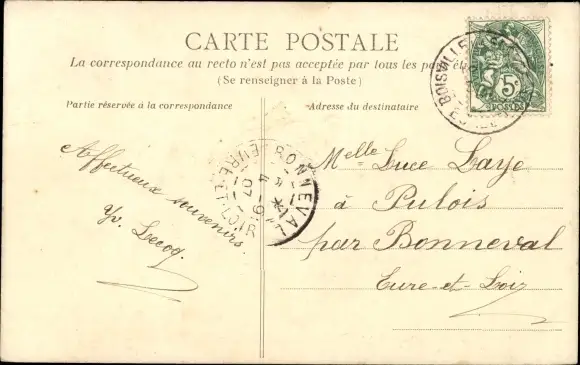 CARTE POSTALE
La correspondance au recto n'est pas acceptée par tous les pays
(Se renseigner à la Poste)
Partie réservée à la correspondance
Adresse du destinataire
Affectueux souvenirs.
Yv. Lecoq.
Melle Luce Laye
à Pulois
par Bonneval
Eure-et-Loir
BONNEVAL
4 -9
07
EURE-ET-LOIR
5c
POSTES